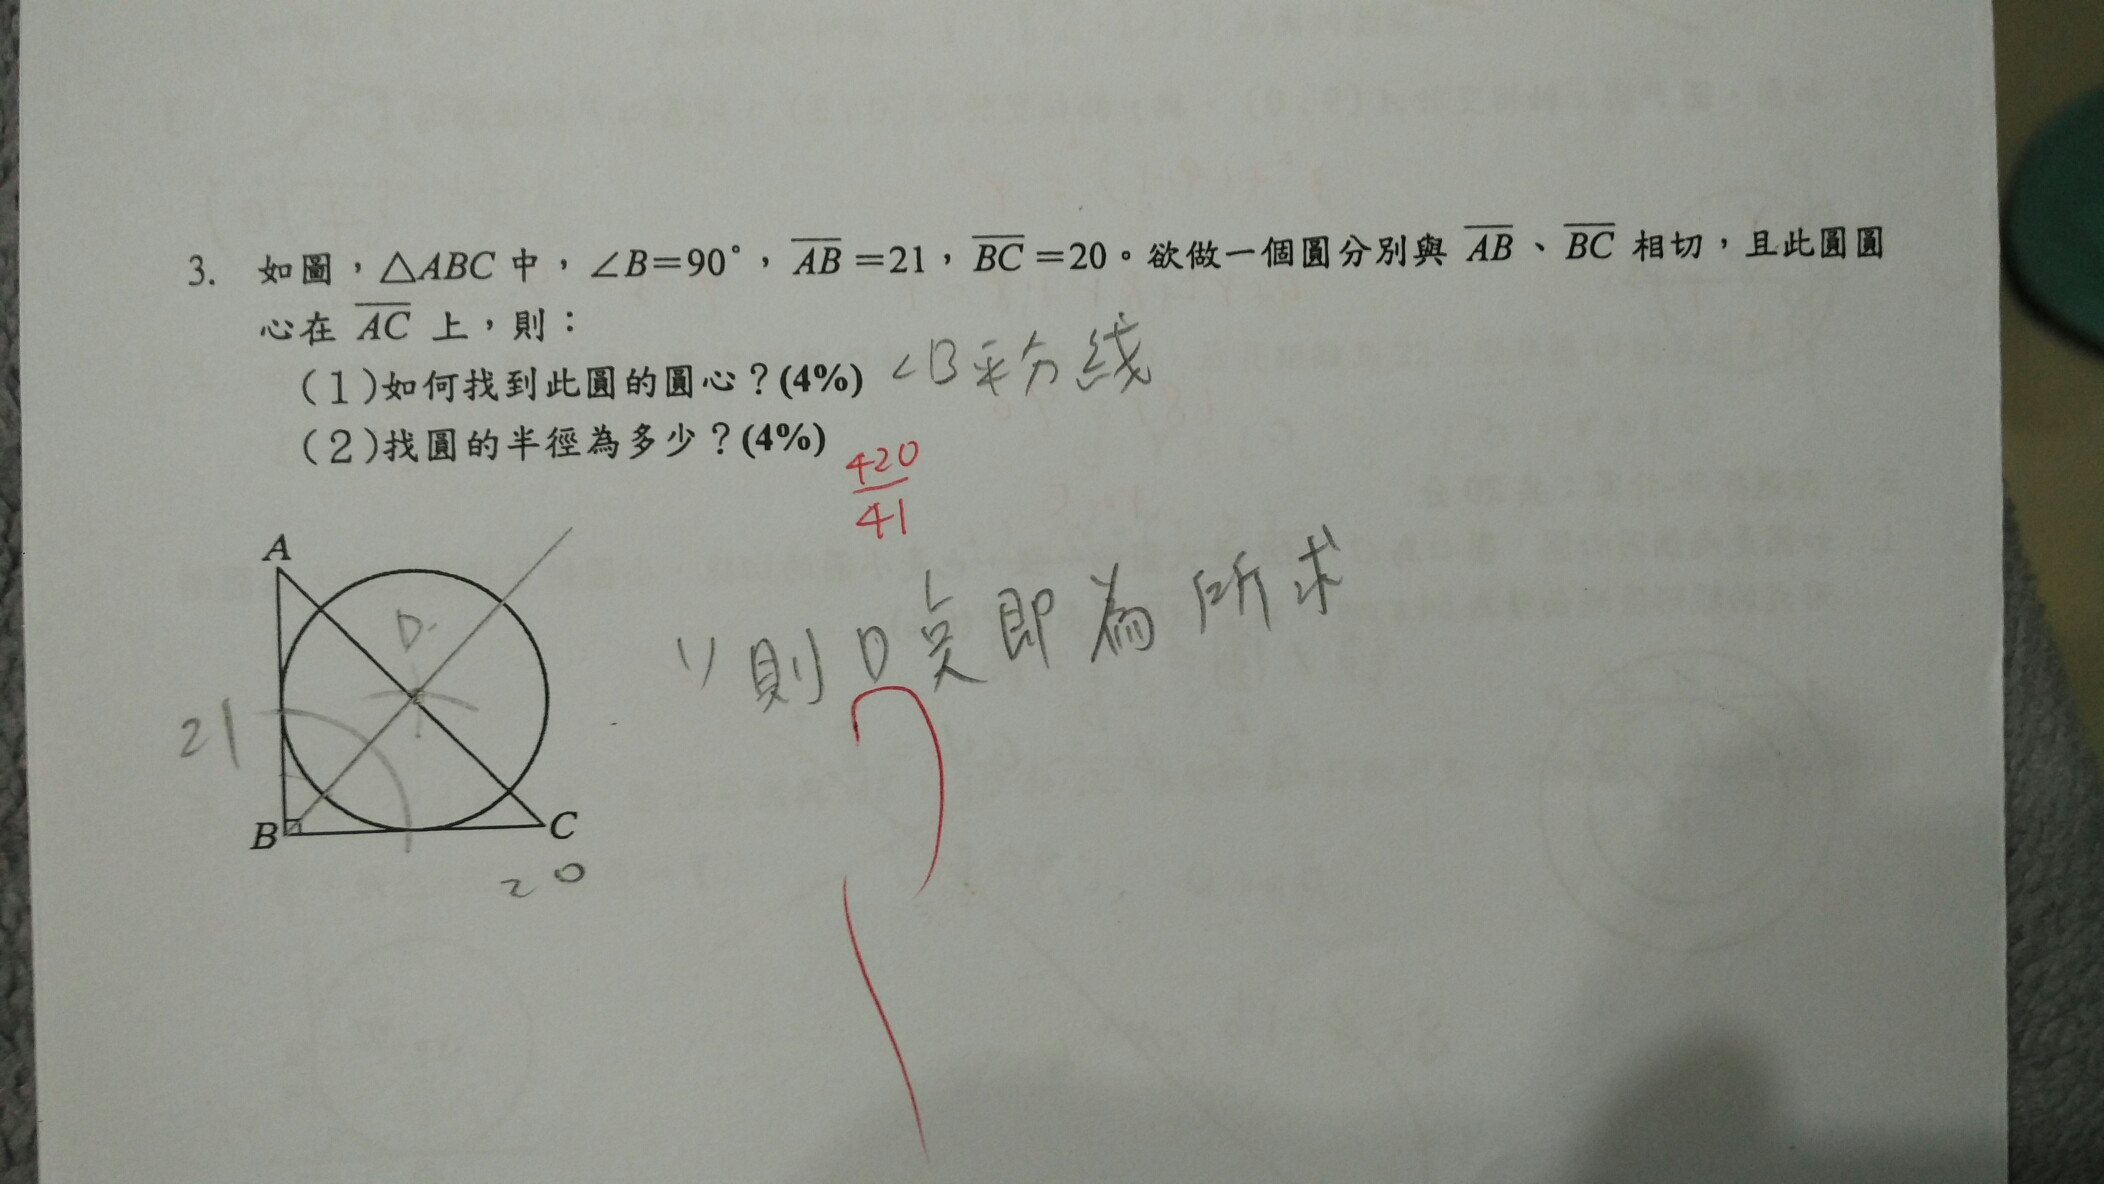 3. 如圖,△ABC 中,∠B=90°,AB=21,BC=20。欲做一個圓分別與 AB、BC 相切,且此圓圓
心在 AC 上,則:
(1)如何找到此圓的圓心?(4%) ∠B平分綫
(2)找圓的半徑為多少?(4%)
420
41
A
D
(1) 則D點即為所求
21
B
C
20